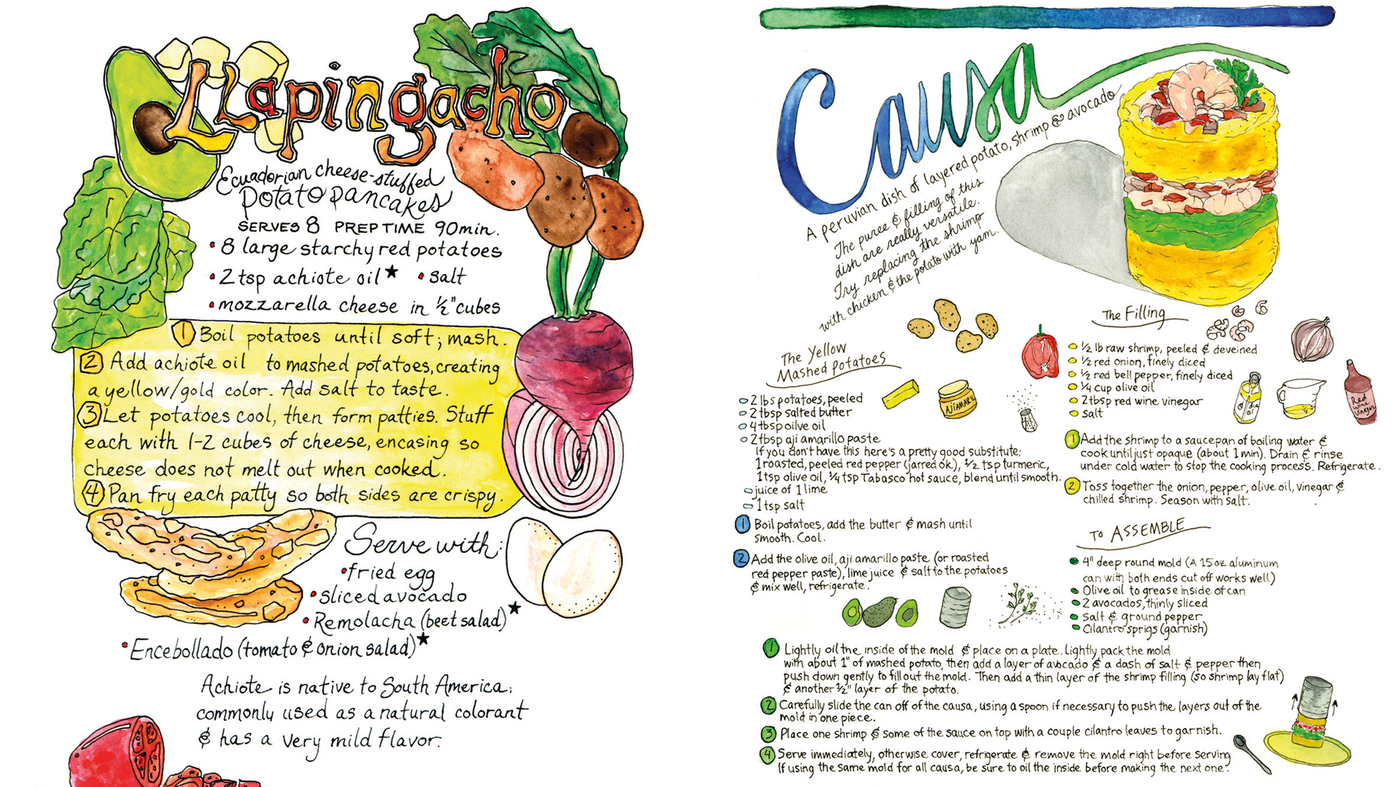 Llapingacho
Ecuadorian cheese-stuffed
Potato pancakes
SERVES 8 PREP TIME 90 min.
• 8 large starchy red potatoes
• 2 tsp achiote oil★ • salt
• mozzarella cheese in ½" cubes
1 Boil potatoes until soft; mash.
2 Add achiote oil to mashed potatoes, creating
a yellow/gold color. Add salt to taste.
3 Let potatoes cool, then form patties. Stuff
each with 1-2 cubes of cheese, encasing so
cheese does not melt out when cooked.
4 Pan fry each patty so both sides are crispy.
Serve with:
• fried egg
• sliced avocado
• Remolacha (beet salad)★
• Encebollado (tomato & onion salad)★
Achiote is native to South America;
commonly used as a natural colorant
& has a very mild flavor.
Causa
A peruvian dish of layered potato, shrimp & avocado
The puree & filling of this
dish are really versatile.
Try replacing the shrimp
with chicken & the potato with yam.
The Yellow
Mashed Potatoes
AJI AMARILLO
2 lbs potatoes, peeled
2 tbsp salted butter
4 tbsp oilve oil
2 tbsp aji amarillo paste
If you don't have this here's a pretty good substitute:
1 roasted, peeled red pepper (jarred ok), ½ tsp turmeric,
1 tsp olive oil, ¼ tsp Tabasco hot sauce, blend until smooth.
juice of 1 lime
1 tsp salt
1 Boil potatoes, add the butter & mash until
smooth. Cool.
2 Add the olive oil, aji amarillo paste (or roasted
red pepper paste), lime juice & salt to the potatoes
& mix well, refrigerate.
The Filling
½ lb raw shrimp, peeled & deveined
½ red onion, finely diced
½ red bell pepper, finely diced
¼ cup olive oil
2 tbsp red wine vinegar
salt
Red
wine
vinegar
1 Add the shrimp to a saucepan of boiling water &
cook until just opaque (about 1 min). Drain & rinse
under cold water to stop the cooking process. Refrigerate.
2 Toss together the onion, pepper, olive oil, vinegar &
chilled shrimp. Season with salt.
To ASSEMBLE
4" deep round mold (A 15 oz aluminum
can with both ends cut off works well)
Olive oil to grease inside of can
2 avocados, thinly sliced
Salt & ground pepper
Cilantro sprigs (garnish)
1 Lightly oil the inside of the mold & place on a plate. Lightly pack the mold
with about 1" of mashed potato, then add a layer of avocado & a dash of salt & pepper then
push down gently to fill out the mold. Then add a thin layer of the shrimp filling (so shrimp lay flat)
& another ½" layer of the potato.
2 Carefully slide the can off of the causa, using a spoon if necessary to push the layers out of the
mold in one piece.
3 Place one shrimp & some of the sauce on top with a couple cilantro leaves to garnish.
4 Serve immediately, otherwise cover, refrigerate & remove the mold right before serving
If using the same mold for all causa, be sure to oil the inside before making the next one.